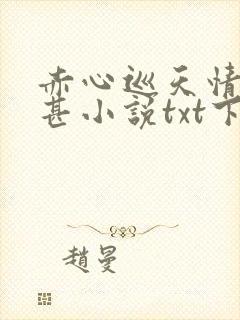 赤心巡天情
甚小説txt下
趙曼